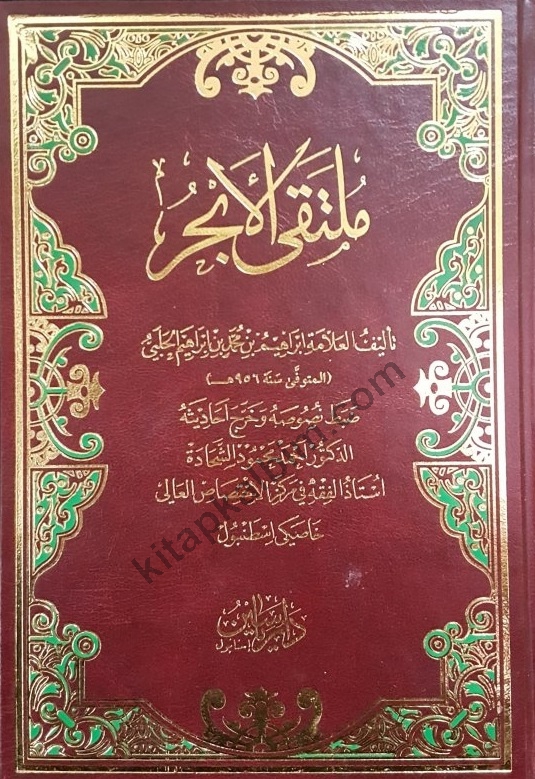 مُلْتَقَى الأَبْحُر
تأليف العلامة ابراهيم بن محمد بن ابراهيم الحلبي
(المتوفى سنة ٩٥٦هـ)
ضبط نصوصه وخرج احاديثه
الدكتور محمود الشحادة
استاذ الفقه في مركز الاختصاص العالي
خاصيكي اسطنبول
دار
إستانبول
kitapkalbim.com